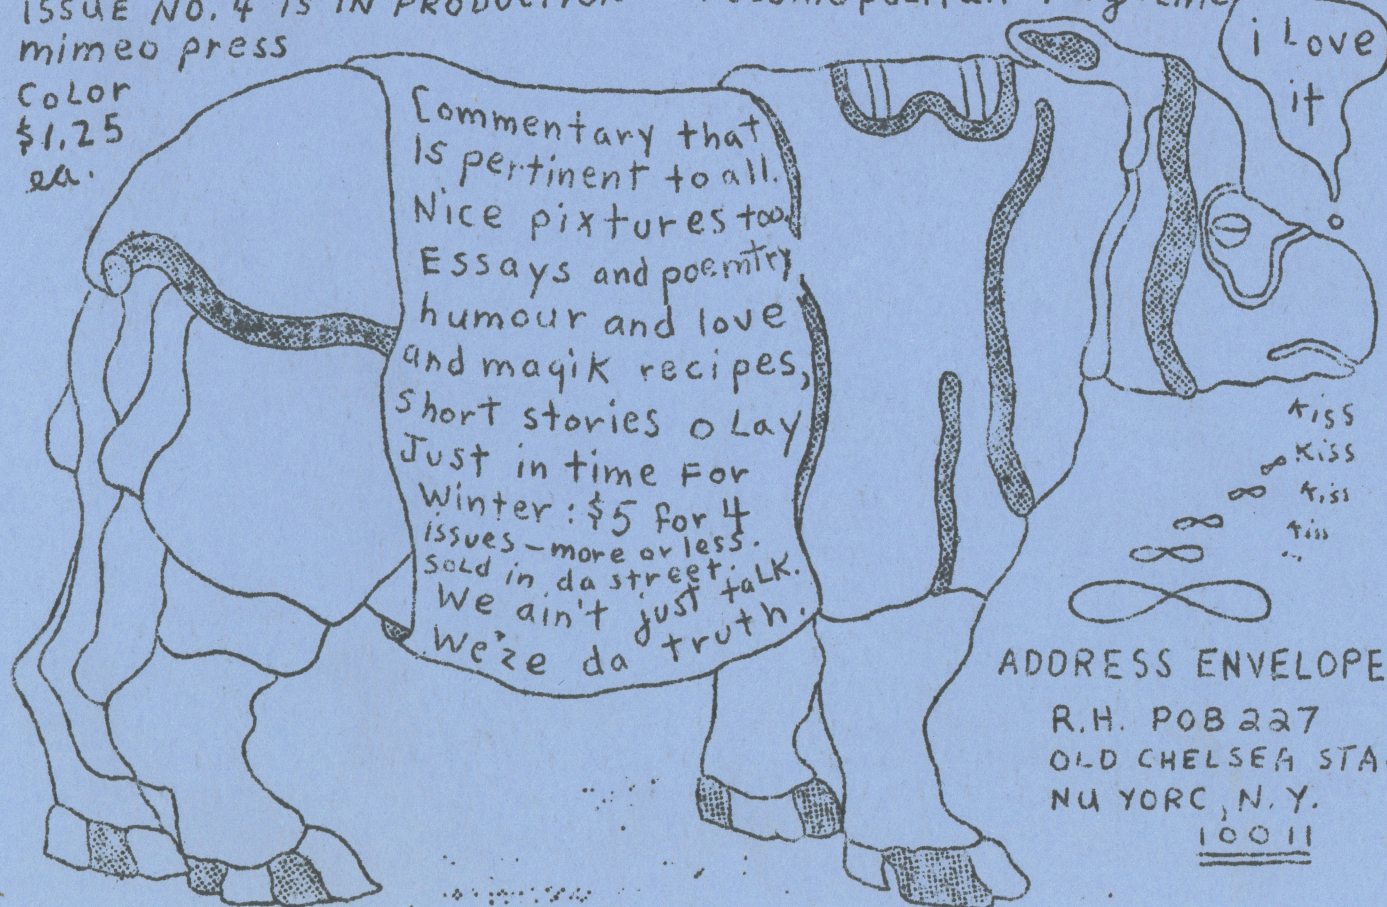 ISSUE NO. 4 IS IN PRODUCTION
mimeo press
COLOR
$1.25
ea.
i Love
it
Commentary that
Is pertinent to all.
Nice pixtures too.
Essays and poemtry
humour and love
and magik recipes,
short stories o Lay
Just in time For
Winter: $5 for 4
issues – more or less.
sold in da street.
We ain't just talk.
We'ze da truth.
kiss
Kiss
kiss
kiss
ADDRESS ENVELOPE
R.H. POB 227
OLD CHELSEA STA
NU YORC, N.Y.
10011